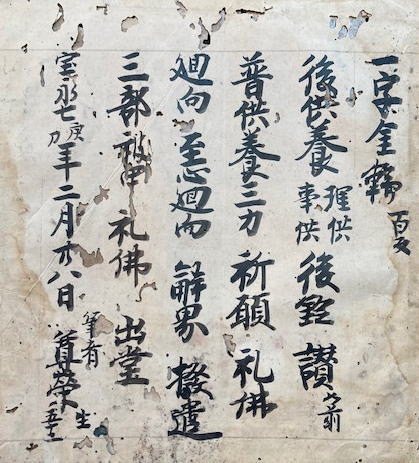 一字金輪 百反
後供養 理供 事供 後鈴 讃
普供養三力 祈願 礼佛
廻向 至心廻向 解界 撥遣
三部 被甲 礼佛 出堂
宝永七庚年二月廿八日 筆者 尊栄 生